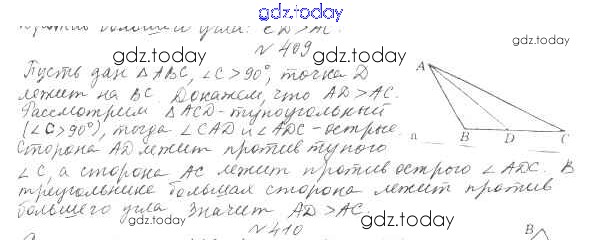 gdz.today
против большего угла: CD>AC.
gdz.today
№ 409
Пусть дан △ABC, ∠C>90°, точка D
лежит на BC. Докажем, что AD>AC.
Рассмотрим △ACD-тупоугольный
(∠C>90°), тогда ∠CAD и ∠ADC-острые.
Сторона AD лежит против тупого
∠C, а сторона AC лежит против острого ∠ADC. В
треугольнике большая сторона лежит против
большего угла. Значит AD>AC.
gdz.today
gdz.today
gdz.today
gdz.today
A
B D C
a
№ 410
B